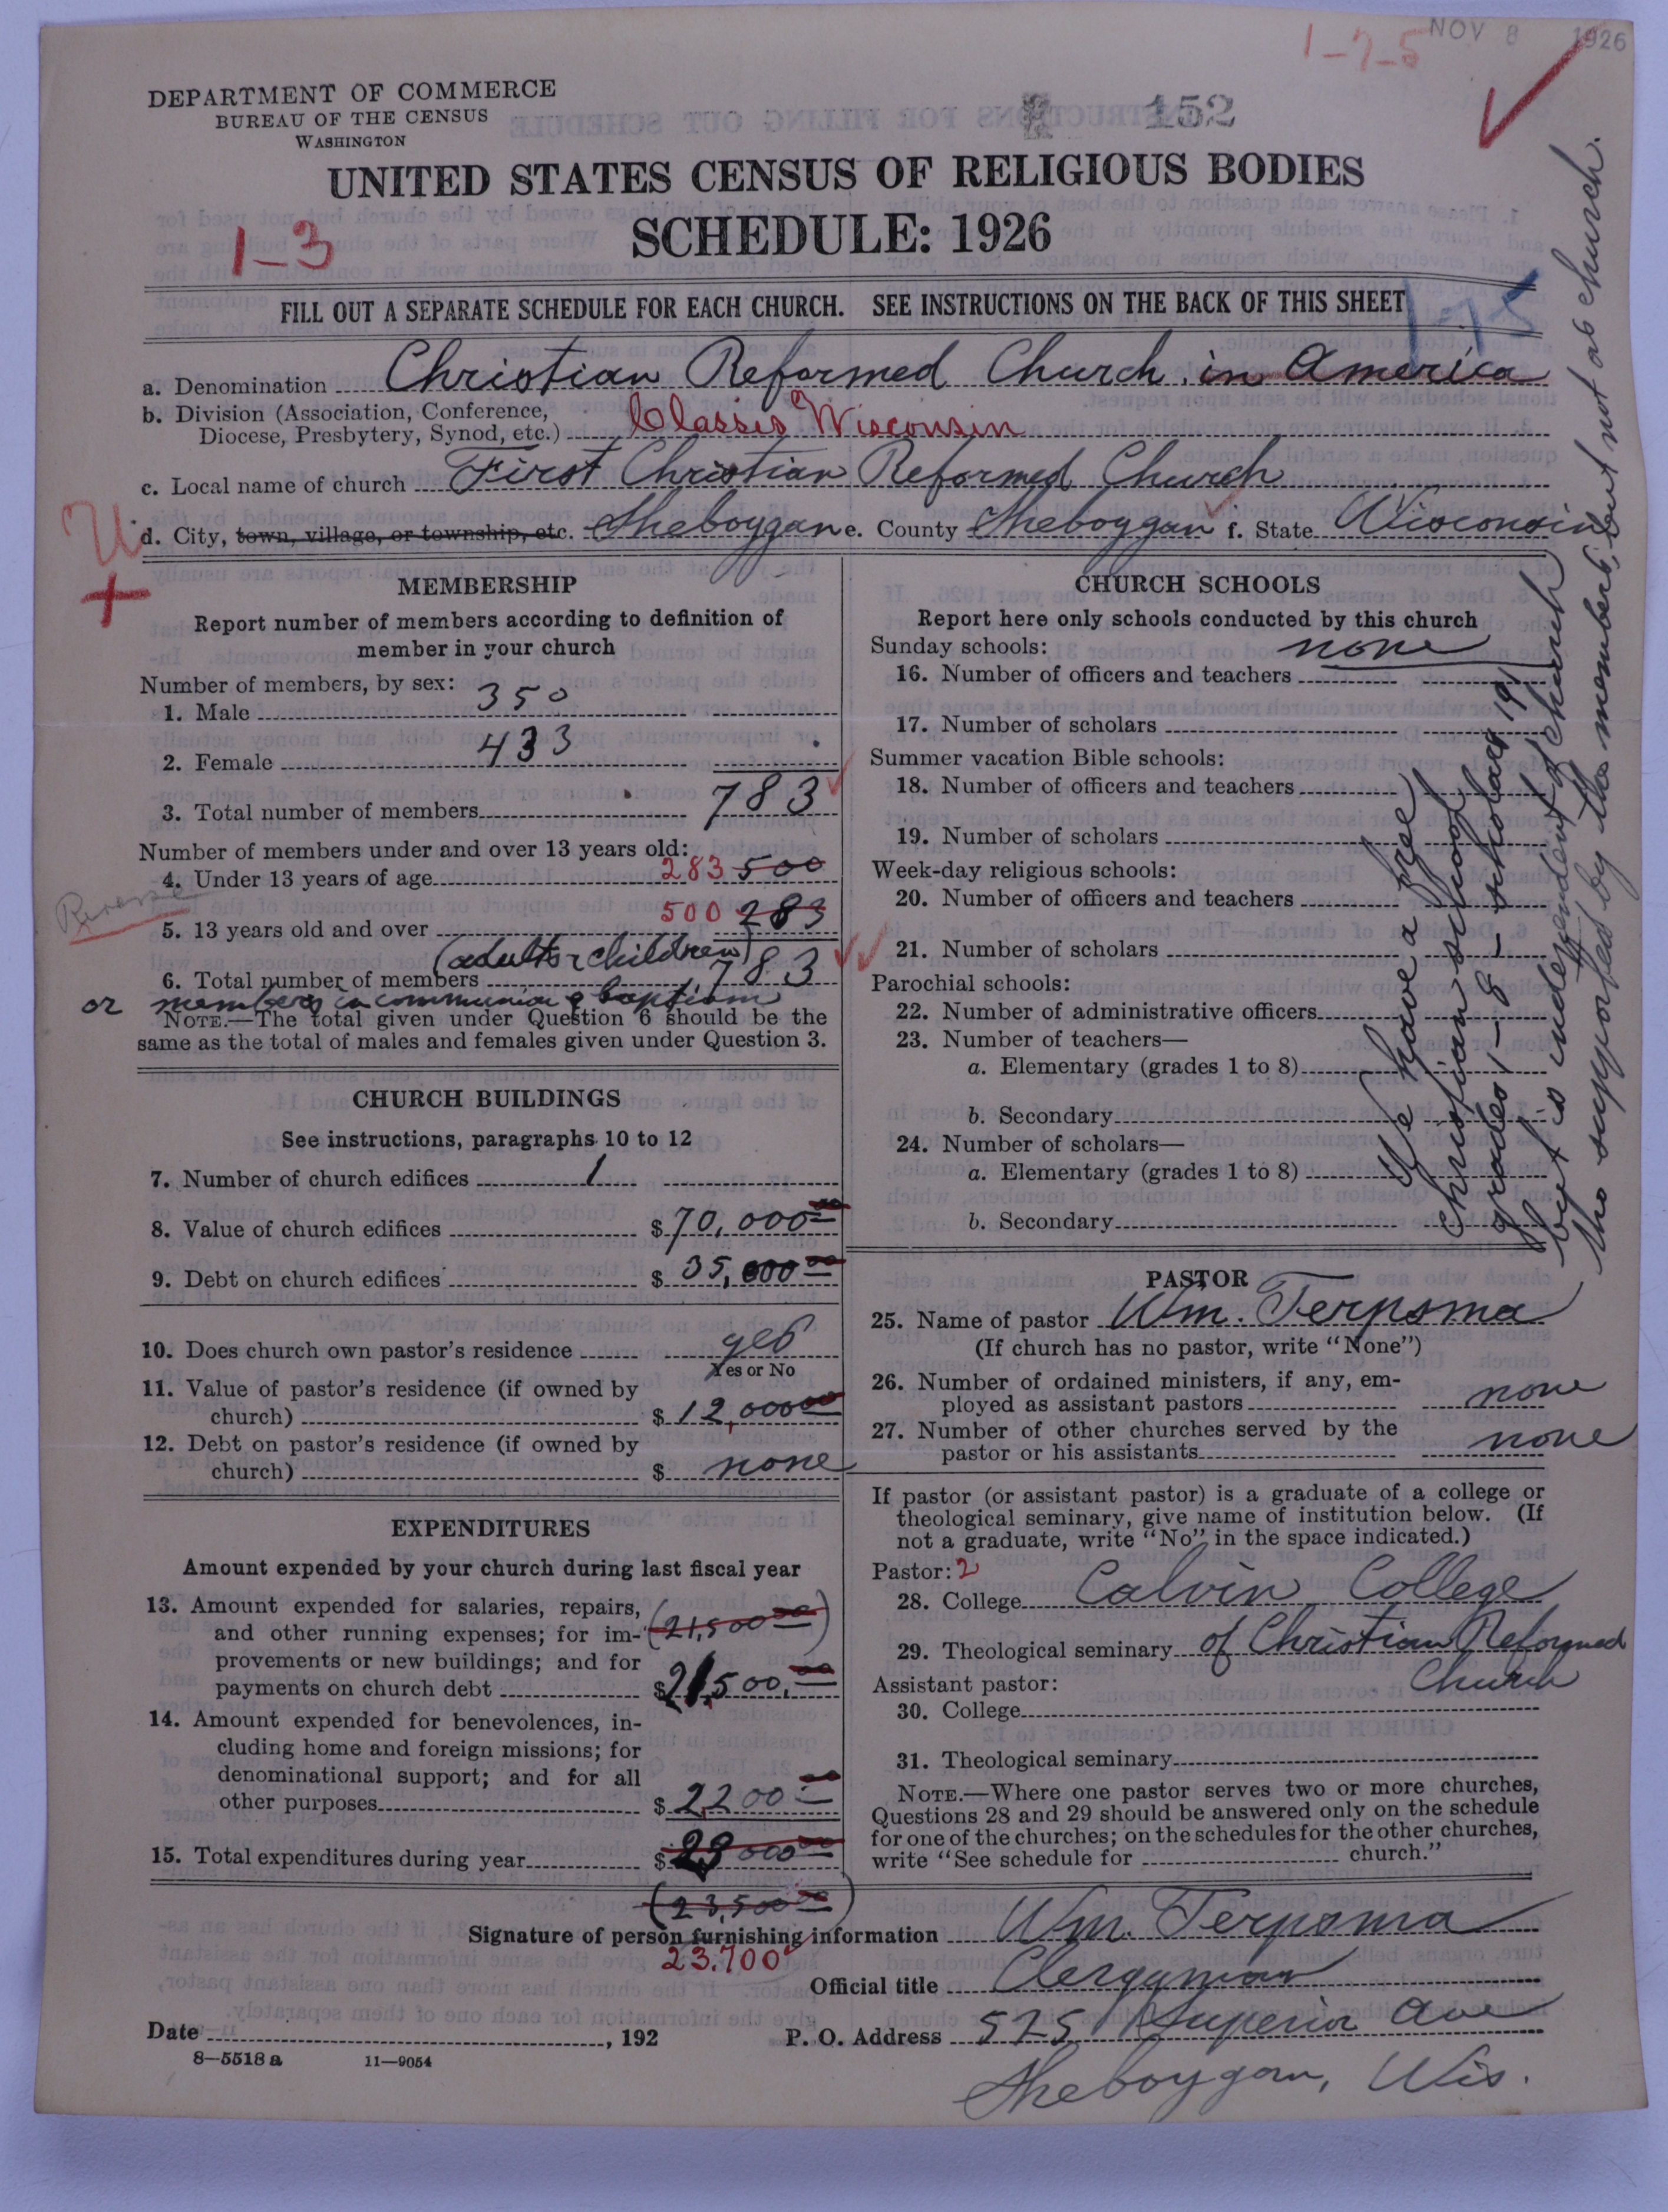 1-7-5
NOV 8 1926
DEPARTMENT OF COMMERCE
BUREAU OF THE CENSUS
WASHINGTON
152
UNITED STATES CENSUS OF RELIGIOUS BODIES
SCHEDULE: 1926
1-3
FILL OUT A SEPARATE SCHEDULE FOR EACH CHURCH. SEE INSTRUCTIONS ON THE BACK OF THIS SHEET
a. Denomination Christian Reformed Church in America
b. Division (Association, Conference,
Diocese, Presbytery, Synod, etc.) Classis Wisconsin
c. Local name of church First Christian Reformed Church
U
d. City, town, village, or township, etc. Sheboygan e. County Sheboygan f. State Wisconsin
+
MEMBERSHIP
Report number of members according to definition of
member in your church
Number of members, by sex:
1. Male 350
2. Female 433
3. Total number of members 783
Number of members under and over 13 years old:
4. Under 13 years of age 283 500
Reverse
5. 13 years old and over 500 283
(adults & children)
6. Total number of members 783
or members in communion & baptism
NOTE.—The total given under Question 6 should be the
same as the total of males and females given under Question 3.
CHURCH BUILDINGS
See instructions, paragraphs 10 to 12
7. Number of church edifices 1
8. Value of church edifices $ 70,000 00
9. Debt on church edifices $ 35,000 00
10. Does church own pastor's residence yes
Yes or No
11. Value of pastor's residence (if owned by
church) $ 12,000 00
12. Debt on pastor's residence (if owned by
church) $ none
EXPENDITURES
Amount expended by your church during last fiscal year
13. Amount expended for salaries, repairs,
and other running expenses; for im- (21,500 00)
provements or new buildings; and for
payments on church debt $ 21,500.00
14. Amount expended for benevolences, in-
cluding home and foreign missions; for
denominational support; and for all
other purposes $ 2,200 00
15. Total expenditures during year $ 23000 00
(23,500 00)
23.700
CHURCH SCHOOLS
Report here only schools conducted by this church
Sunday schools: none
16. Number of officers and teachers
17. Number of scholars
Summer vacation Bible schools:
18. Number of officers and teachers
19. Number of scholars
Week-day religious schools:
20. Number of officers and teachers
21. Number of scholars
Parochial schools:
22. Number of administrative officers
23. Number of teachers—
a. Elementary (grades 1 to 8)
b. Secondary
24. Number of scholars—
a. Elementary (grades 1 to 8)
b. Secondary
We have a free
Christian school
grades 1-8 - scholars 191
but is independent of church
tho supported by the members, but not as church.
PASTOR
25. Name of pastor Wm. Terpsma
(If church has no pastor, write "None")
26. Number of ordained ministers, if any, em-
ployed as assistant pastors none
27. Number of other churches served by the
pastor or his assistants none
If pastor (or assistant pastor) is a graduate of a college or
theological seminary, give name of institution below. (If
not a graduate, write "No" in the space indicated.)
Pastor: 2
28. College Calvin College
29. Theological seminary of Christian Reformed
Church
Assistant pastor:
30. College
31. Theological seminary
NOTE.—Where one pastor serves two or more churches,
Questions 28 and 29 should be answered only on the schedule
for one of the churches; on the schedules for the other churches,
write "See schedule for church."
Signature of person furnishing information Wm. Terpsma
Official title Clergyman
Date , 192
P. O. Address 525 Superior Ave
Sheboygan, Wis.
8—5518 a 11—9054